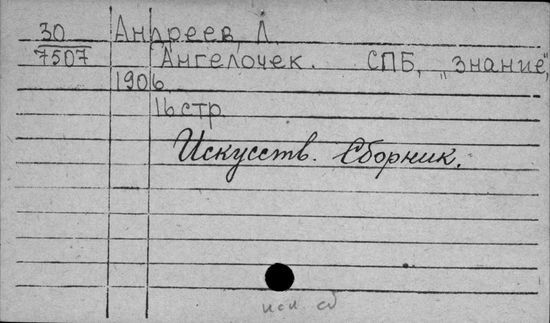 30 Андреев, Л
7507 Ангелочек. СПБ, "Знание",
1906
16 стр
Искусств. Сборник.
иск. сб